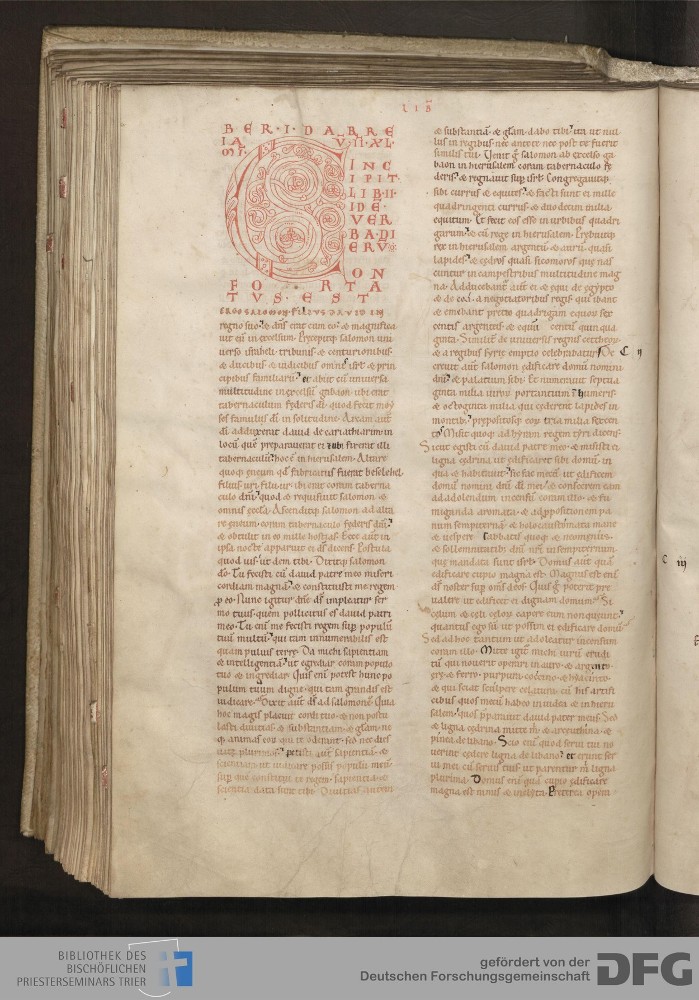 LIB
BER·I·DABRE
IA
INC
IPIT
LIB·II·
IDĒ
VER
BA·DI
ERV
ON
FORTA
TVS·EST
ERGO SALOMON FILIVS DAVID IN
regno suo
uit eum in excelsum. Precepitq; salomon uni
uerso israheli. tribunis & centurionibus
& ducibus & iudicibus omnis isrł & prin
cipibus familiarū· et abiit cū uniuersa
multitudine in excelsū gabaon· ubi erat
tabernaculum federis dī· quod fecit moy
ses famulus dī in solitudine. Arcam aūt
dī adduxerat dauid de cariathiarim in
locū quē preparauerat ei
tabernaculū hoc ē in hierusalem. Altare
quoq; eneum qđ fabricatus fuerat beseleel
filius uri filii ur· ibi erat coram taberna
culo dnī· quod & requisiuit salomon &
omnis eccła. Ascenditq; salomon ad alta
re eneum· coram tabernaculo federis dnī
& obtulit in eo mille hostias. Ecce aūt in
ipsa nocte apparuit ei dſ dicens. Postula
quod uis ut dem tibi. Dixitq; salomon
dō. Tu fecisti cū dauid patre meo miseri
cordiam magnā· & constituisti me regem
ꝓ eo. Nunc igitur dne dſ impleatur ser
mo tuus quem pollicitus es dauid patri
meo. Tu enī me fecisti regem sup populū
tuū multū· qui tam innumerabilis est
quam puluis terre. Da michi sapientiam
& intelligentiā· ut egrediar coram populo
tuo & ingrediar. Quis enī potest hunc po
pulum tuum digne· qui tam grandis est
iudicare. Dixit aūt dſ ad salomonē. Quia
hoc magis placuit cordi tuo· & non postu
lasti diuitias & substantiam & głam· ne
q; animas eorū qui te oderant· sed nec dies
uite plurimos· petisti aūt sapientiā &
scientiam ut iudicare possis populū meū
sup quē constitui te regem· sapientia &
scientia data sunt tibi. Diuitias autem
& substantiā & głam dabo tibi· ita ut nul
lus in regibus nec ante te nec post te fuerit
similis tui. Venit g̊ salomon ab excelso ga
baon in hierusalem coram tabernaculo fe
deris· & regnauit sup isrł. Congregauitq;
sibi currus & equites· & facti sunt ei mille
quadringenti currus· & duodecim milia
equitum. Et fecit eos esse in urbibus quadri
garum· & cū rege in hierusalem. Prebuitq;
rex in hierusalem argentū & aurū quasi
lapides· & cedros quasi sicomoros que nas
cuntur in campestribus multitudine mag
na. Adducebant̄ aūt ei & equi de egypto
& de coa· a negotiatoribus regis· qui ibant
& emebant precio quadrigam equorū sex
centis argenteis· & equū centū quinqua
ginta. Similit̄ de uniuersis regnis cettheorū
& a regibus syrie emptio celebrabatur. De
creuit aūt salomon edificare domū nomini
dnī· & palatium sibi. Et numerauit septua
ginta milia uirorū portantium humeris
& octoginta milia qui cederent lapides in
montib; prepositosq; eorū tria milia sexcen
tos. Misit quoq; ad hyram regem tyri dicens.
Sicut egisti cū dauid patre meo· & misisti ei
ligna cedrina ut edificaret sibi domū in
qua & habitauit· sic fac mecū ut edificem
domū nomini dnī dī mei· & consecrem eam
ad adolendum incensū coram illo· & fu
miganda aromata· & ad propositionem pa
num sempiternā· & holocaustomata mane
& uespere· sabbatis quoq; & neomeniis
& sollemnitatibus dnī nrī in sempiternum
que mandata sunt isrł. Domus aūt quā
edificare cupio magna est. Magnus est enī
dſ noster sup omnes deos. Quis g̊ poterit pre
ualere ut edificet ei dignam domum. Si
celum & celi celorū capere eum non queunt
quantus ego sū· ut possim ei edificare domū·
Sed ad hoc tantum ut adoleatur incensum
coram illo. Mitte igit̄ michi uirū erudi
tū· qui nouerit operari in auro & argento
ere & ferro· purpura· coccino· & hyacincto
& qui sciat sculpere celaturas cū his artifi
cibus quos mecū habeo in iudea & in hieru
salem· quos pparauit dauid pater meus. Sed
& ligna cedrina mitte m̄ & arceuthina· &
pinea de libano. Scio enī quod serui tui no
uerint cedere ligna de libano· et erunt ser
ui mei cū seruis tuis· ut parentur m̄ ligna
plurima. Domus enī quā cupio edificare
magna est nimis & inclita. Preterea operi
C II
C III
BIBLIOTHEK DES
BISCHÖFLICHEN
PRIESTERSEMINARS TRIER
gefördert von der
Deutschen Forschungsgemeinschaft DFG